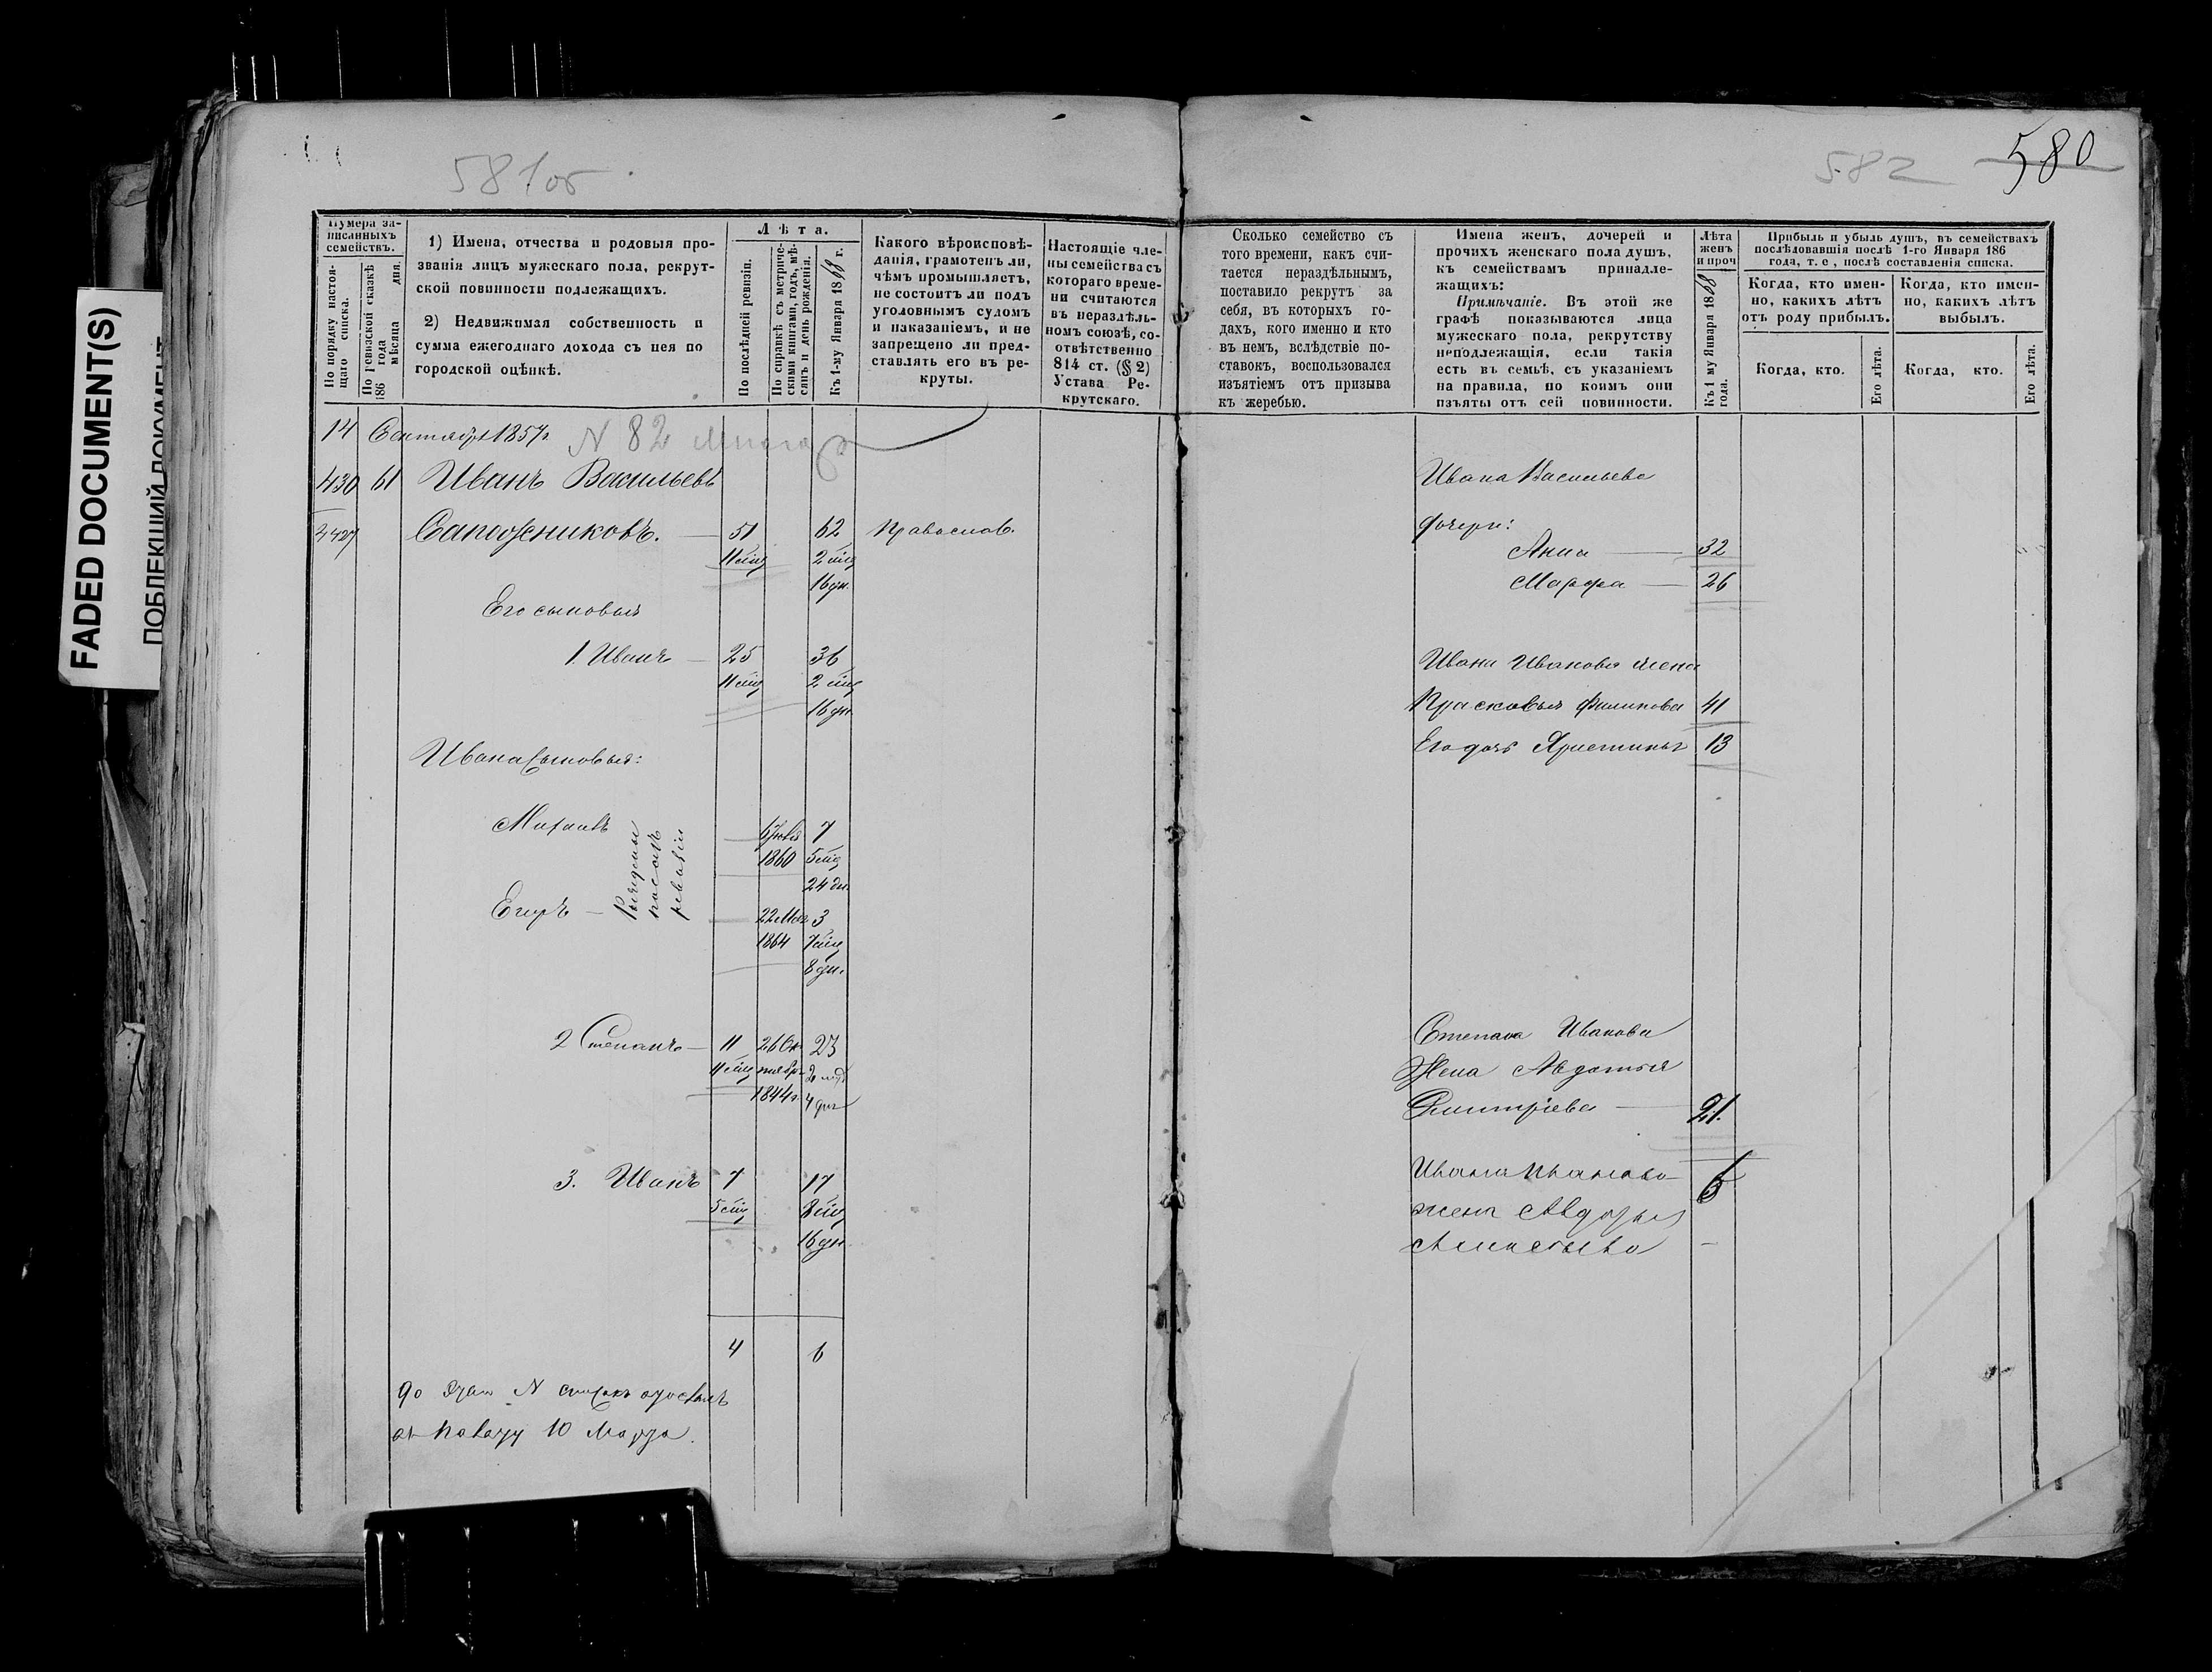 FADED DOCUMENT(S)
ПОБЛЕКШИЙ ДОКУМЕНТ
581об
582
580
Нумера за-
писанныхъ
семействъ.
По порядку настоя-
щаго списка.
По ревизской сказкѣ
186 года
мѣсяца дня.
1) Имена, отчества и родовыя про-
званія лицъ мужескаго пола, рекрут-
ской повинности подлежащихъ.
2) Недвижимая собственность и
сумма ежегоднаго дохода съ нея по
городской оцѣнкѣ.
Лѣта.
По послѣдней ревизіи.
По справкѣ съ метриче-
скими книгами, годъ, мѣ-
сяцъ и день рожденія.
Къ 1-му Января 1868 г.
Какого вѣроисповѣ-
данія, грамотенъ ли,
чѣмъ промышляетъ,
не состоитъ ли подъ
уголовнымъ судомъ
и наказаніемъ, и не
запрещено ли пред-
ставлять его въ ре-
круты.
Настоящіе чле-
ны семейства съ
котораго време-
ни считаются
въ нераздѣль-
номъ союзѣ, со-
отвѣтственно
814 ст. (§ 2)
Устава Ре-
крутскаго.
Сколько семейство съ
того времени, какъ счи-
тается нераздѣльнымъ,
поставило рекрутъ за
себя, въ которыхъ го-
дахъ, кого именно и кто
въ немъ, вслѣдствіе по-
ставокъ, воспользовался
изъятіемъ отъ призыва
къ жеребью.
Имена женъ, дочерей и
прочихъ женскаго пола душъ,
къ семействамъ принадле-
жащихъ:
Примѣчаніе. Въ этой же
графѣ показываются лица
мужескаго пола, рекрутству
неподлежащія, если такія
есть въ семьѣ, съ указаніемъ
на правила, по коимъ они
изъяты отъ сей повинности.
Лѣта
женъ
и проч
Къ 1 му Января 1868
года.
Прибыль и убыль душъ, въ семействахъ
послѣдовавшія послѣ 1-го Января 186
года, т. е., послѣ составленія списка.
Когда, кто имен-
но, какихъ лѣтъ
отъ роду прибылъ.
Когда, кто имен-
но, какихъ лѣтъ
выбылъ.
Когда, кто.
Его лѣта.
Когда, кто.
Его лѣта.
14 Сентября 1857г
N 82
430 61 Иванъ Васильевъ
Сапожниковъ. 51 62 Православ.
11 мѣц 2 мѣц
16 дн.
Его сыновья
1. Иванъ 25 36
11 мѣц 2 мѣц
16 дн.
Ивана Сыновья:
Михаилъ 7
1860 5 мѣц
24 дн.
Рожденые
послѣ
ревизіи
Егоръ 22 Мая 3
1864 7 мѣц
8 дн.
2 Степанъ 11 26 Ок 23
11 мѣц тября 2 мѣц
1844г. 4 дня
3. Иванъ 7 17
5 мѣц 8 мѣц
16 дн.
4 6
10 Марта.
Ивана Васильева
дочери:
Анна 32
Марфа 26
Ивана Иванова жена
Прасковья Филипова 41
Его дочь Христинья 13
Степана Иванова
Жена Авдотья
Дмитріева 21.
Ивана Иванова
жена Авдотья
6